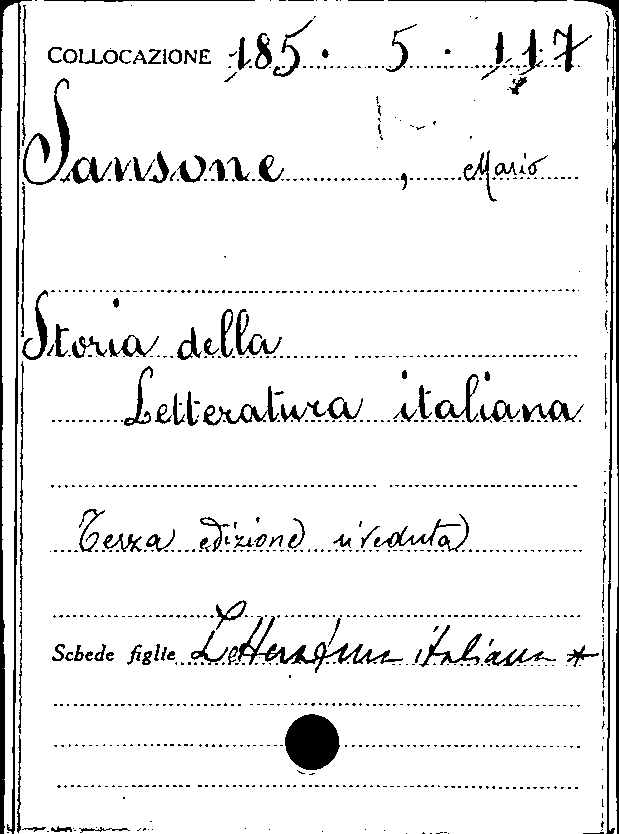 COLLOCAZIONE 185 . 5 . 117
Sansone , Mario
Storia della
Letteratura italiana
Terza edizione riveduta
Schede figlie Letteratura italiana *